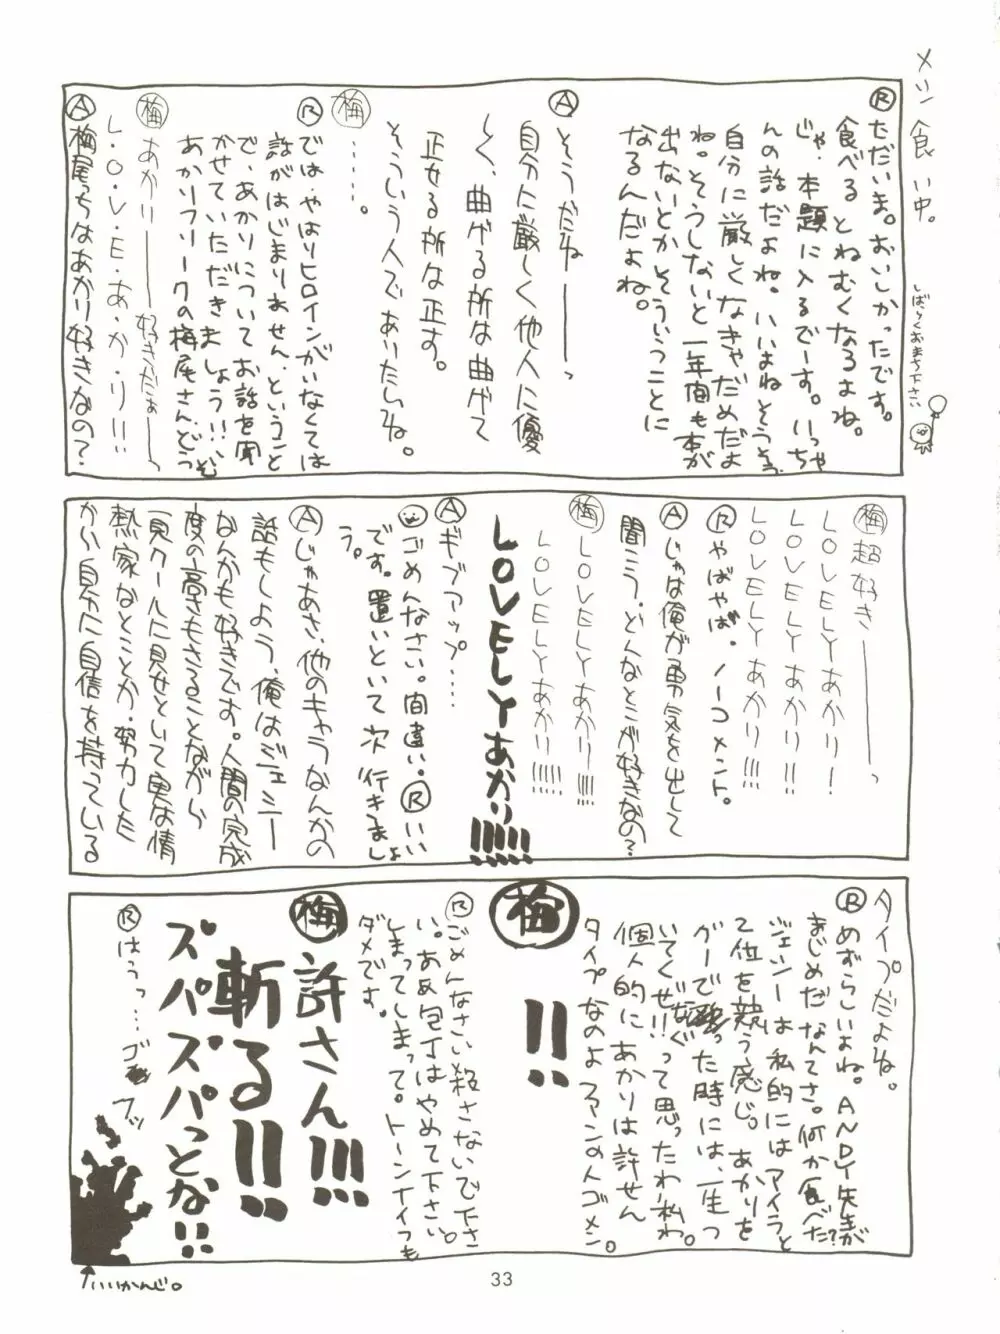 メシ食い中。
しばらくおまち下さい
Ⓡただいま。おいしかったです。
食べるとねむくなるよね。
じゃ、本題に入るでーす。いっちゃ
んの話だよね。いいよねそうそう
自分に厳しくなきゃだめだよ
ね。そうしないと一年間も本が
出ないとかそういうことに
なるんだよね。
Ⓐそうだねーーっ
自分に厳しく他人に優
しく、曲げる所は曲げて
正せる所は正す。
そういう人でありたいね。
㊙梅
……。
Ⓡでは、やはりヒロインがいなくては
話がはじまりません、ということ
で、あかりについてお話を聞
かせていただきましょう!!、
あかりフリークの梅尾さん、どうぞ
梅 あかりーーー好きだぁーーっ
L・O・V・E・あ・か・り!!
Ⓐ梅尾っちはあかり好きなの？
梅 超好きーーーーっ
LOVELYあかり!
LOVELYあかり!!
LOVELYあかり!!!
Ⓡやばやば。ノーコメント。
Ⓐじゃは俺が勇気を出して
聞こう、どんなとこが好きなの？
梅 LOVELYあかり!!!!
LOVELYあかり!!!!!
LOVELYあかり!!!!!!
Ⓐギブアップ……
ごめんなさい。間違い。Ⓡいい
です。置いといて次行きましょ
う。
Ⓐじゃあさ、他のキャラなんかの
話もしよう、俺はジェシー
なんかも好きです。人間の完成
度の高さもさることながら
一見クールに見せといて実は情
熱家なとことか、努力した
から自分に自信を持っている
タイプだよね。
Ⓡめずらしいよね。ANDY先生が
まじめだなんてさ。何か食べた？
ジェシーは私的にはアイラと
2位を競う感じ。あかりを
グーでなぐった時には、一生つ
いてくぜ!!って思ったわ私わ。
個人的にあかりは許せん
タイプなのよファンの人ゴメン。
梅 !!
Ⓡごめんなさい殺さないで下さ
い。ああ包丁はやめて下さい。
しまってしまって。トーンナイフも
ダメです。
梅 許さん!!!
斬る!!
ズバズバっとな!!
Ⓡはうっ…ゴフッ
↑いいかんじ。
33